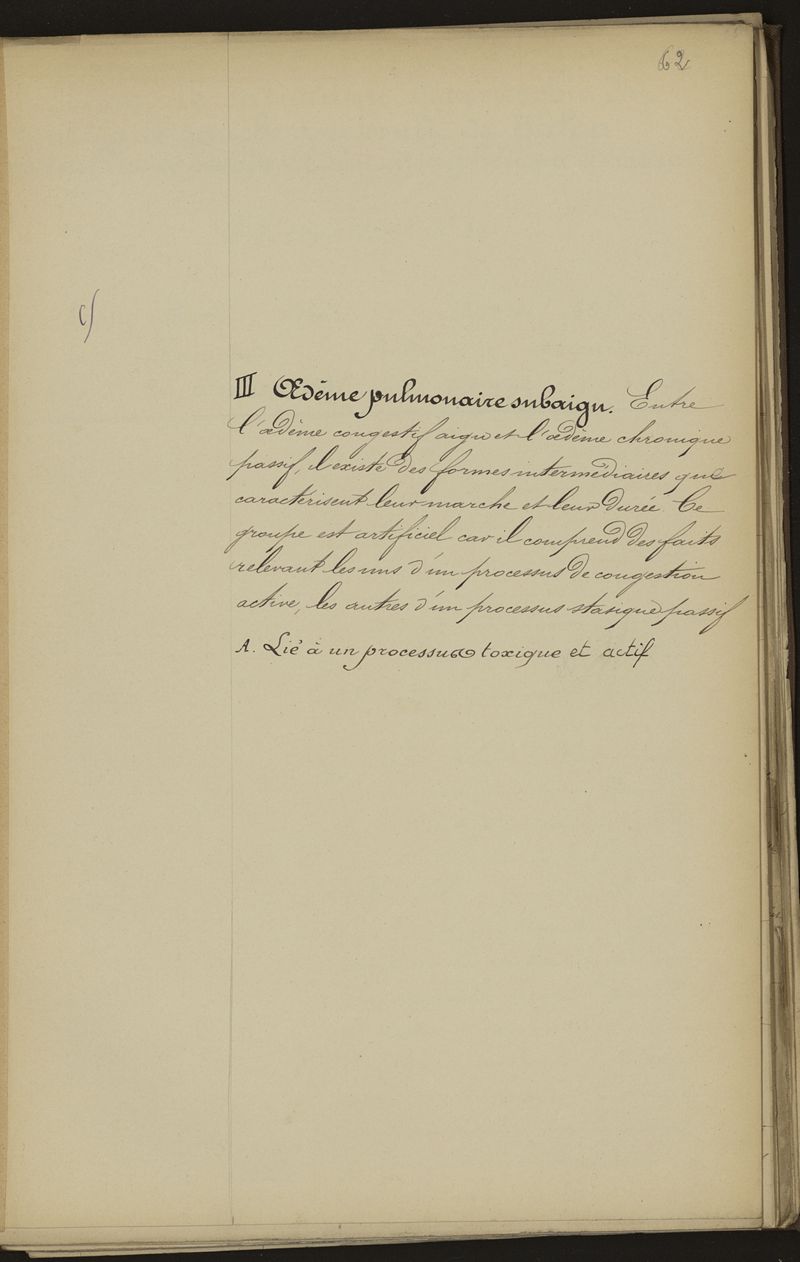 62
c)
III Œdème pulmonaire subaigu. Entre
l'œdème congestif aigu et l'œdème chronique
passif, il existe des formes intermédiaires que
caractérisent leur marche et leur durée. Ce
groupe est artificiel car il comprend des faits
relevant les uns d'un processus de congestion
active, les autres d'un processus stasique passif
A. Lié à un processus toxique et actif